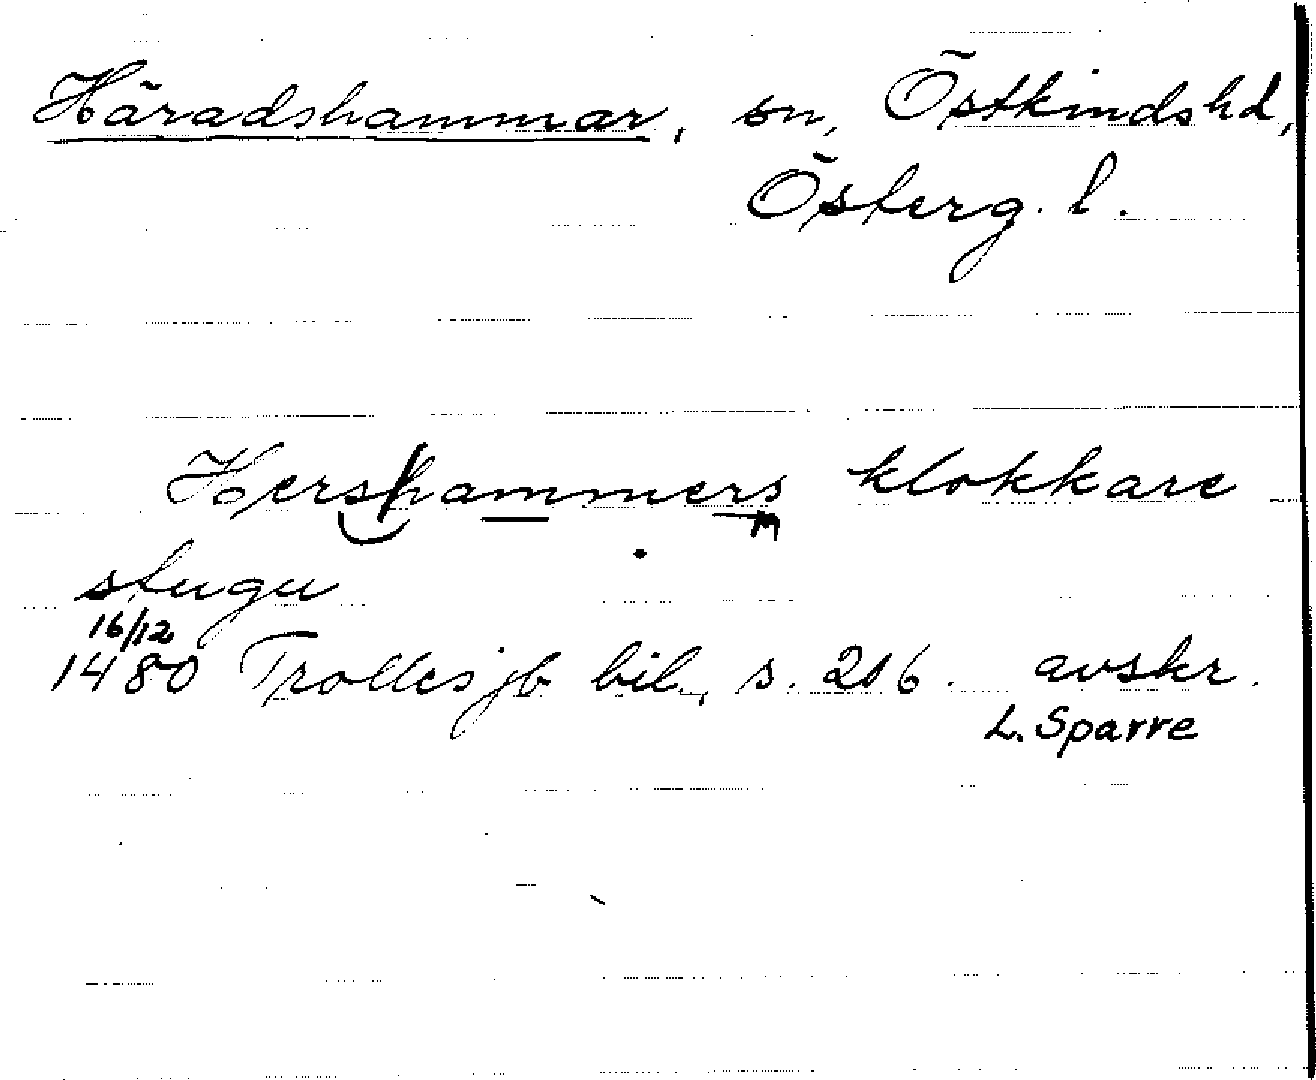 Häradshammar, sn, Östkindshd,
Österg. l.
Hershammers klokkare
stugu
16/12
1480 Trolles jb bil., s. 206. avskr.
L. Sparre